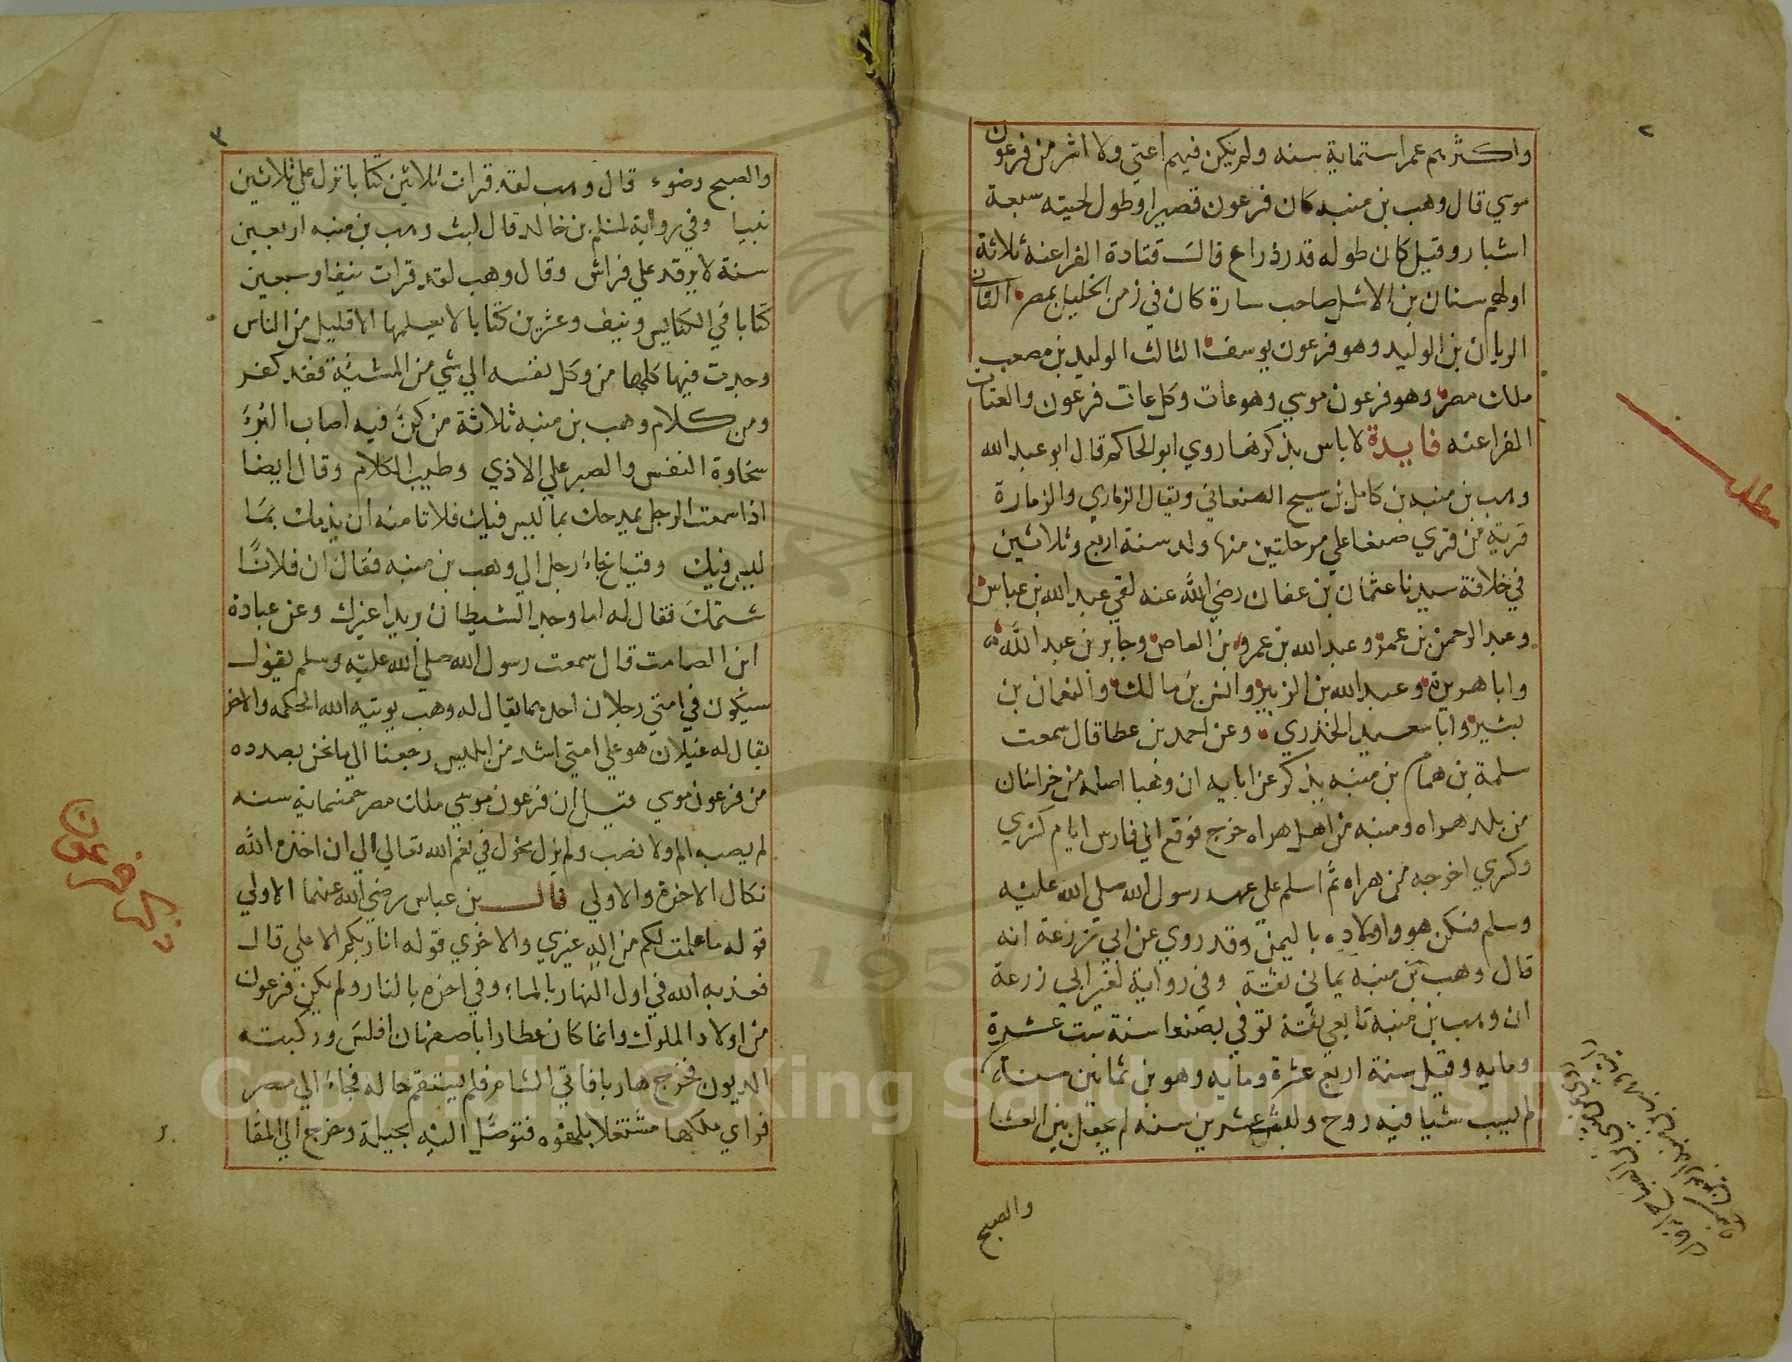 ٢
واكثرهم عمرا ستماية سنه ولم يكن فيهم اعتي ولا اشر من فرعون
موسي قال وهب بن منبه كان فرعون قصيرا وطول لحيته سبعة
اشبار وقيل كان طوله قدر ذراع قالت قتادة الفراعنه ثلاثة
اولهم سنان بن الاشل صاحب سارة كان في زمن الخليل بمصر الثان
الريان بن الوليد وهو فرعون يوسف الثالث الوليد بن مصعب
ملك مصر وهو فرعون موسي وهو عات وكل عات فرعون والعتاة
الفراعنه فايدة لا باس بذكرها روي ابو الحاكم قال ابو عبد الله
وهب بن منبه بن كامل بن سيح الصنعاني ويقال الزماري والزمارة
قرية من قري صنعا علي مرحلتين منها ولد سنة اربع وثلاثين
في خلافة سيدنا عثمان بن عفان رضي الله عنه لقي عبد الله بن عباس
وعبد الرحمن بن عمر وعبد الله بن عمرو بن العاص وجابر بن عبد الله
وابا هريرة وعبد الله بن الزبير وانس بن مالك والنعمان بن
بشير وابا سعيد الخذري وعن احمد بن عطا قال سمعت
سلمة بن همام بن منبه يذكر عن ابايه ان وهبا اصله من خراسان
من بلد هراه ومنبه من اهل هراه خرج فوقع الي فارس ايام كسري
وكسري اخرجه من هراه ثم اسلم علي عهد رسول الله صلي الله عليه
وسلم فسكن هو واولاده باليمن وقد روي عن ابي زرعة انه
قال وهب بن منبه يماني ثقة وفي رواية لغير ابي زرعة
ان وهب بن منبه تابعي ثقة توفي بصنعا سنة ست عشرة
ومايه وقيل سنة اربع عشرة ومايه وهو بن ثمانين سنة
لم يسب شيا فيه روح ولبث عشرين سنه لم يجعل بين العشا
والصبح
٣
والصبح وضوء قال وهب لقد قرات ثلاثين كتابا نزل علي ثلاثين
نبيا وفي رواية لمسلم بن خالد قال لبث وهب بن منبه اربعين
سنة لا يرقد علي فراش وقال وهب لقد قرات نيفا وسبعين
كتابا في الكنايس ونيف وعشرين كتابا لا يعلمها الا قليل من الناس
وجدت فيها كلها من وكل نفسه الي شي من المشية فقد كفر
ومن كلام وهب بن منبه ثلاثة من كن فيه اصاب البر
سخاوة النفس والصبر علي الاذي وطيب الكلام وقال ايضا
اذا سمعت الرجل يمدحك بما ليس فيك فلا تامنه ان يذمك بما
ليس فيك وقيل جاء رجل الي وهب بن منبه فقال ان فلانا
شتمك فقال له اما وجد الشيطان بريدا غيرك وعن عبادة
ابن الصامت قال سمعت رسول الله صلي الله عليه وسلم يقول
سيكون في امتي رجلان احدهما يقال له وهب يوتيه الله الحكمه والاخر
يقال له غيلان هو علي امتي اشد من ابليس رجعنا الي ما نحن بصدده
من فرعون موسي قيل ان فرعون موسي ملك مصر خمسماية سنه
لم يصبه الم ولا نصب ولم يزل مخول في نعم الله تعالي الي ان اخذه الله
نكال الاخرة والاولي قال بن عباس رضي الله عنهما الاولي
قوله ما علمت لكم من اله غيري والاخري قوله انا ربكم الاعلي قال
فعذبه الله في اول النهار بالماء وفي اخره بالنار ولم يكن فرعون
من اولاد الملوك وانما كان عطارا باصفهان افلس وركبته
الديون فخرج هاربا فاتي الشام فلم يستقم حاله فجاء الي مصر
فراي ملكها مشتغلا بلهوه فتوصل اليه بحيلة وخرج الي المقا
ذكر فرعون
Copyright © King Saud University
1957